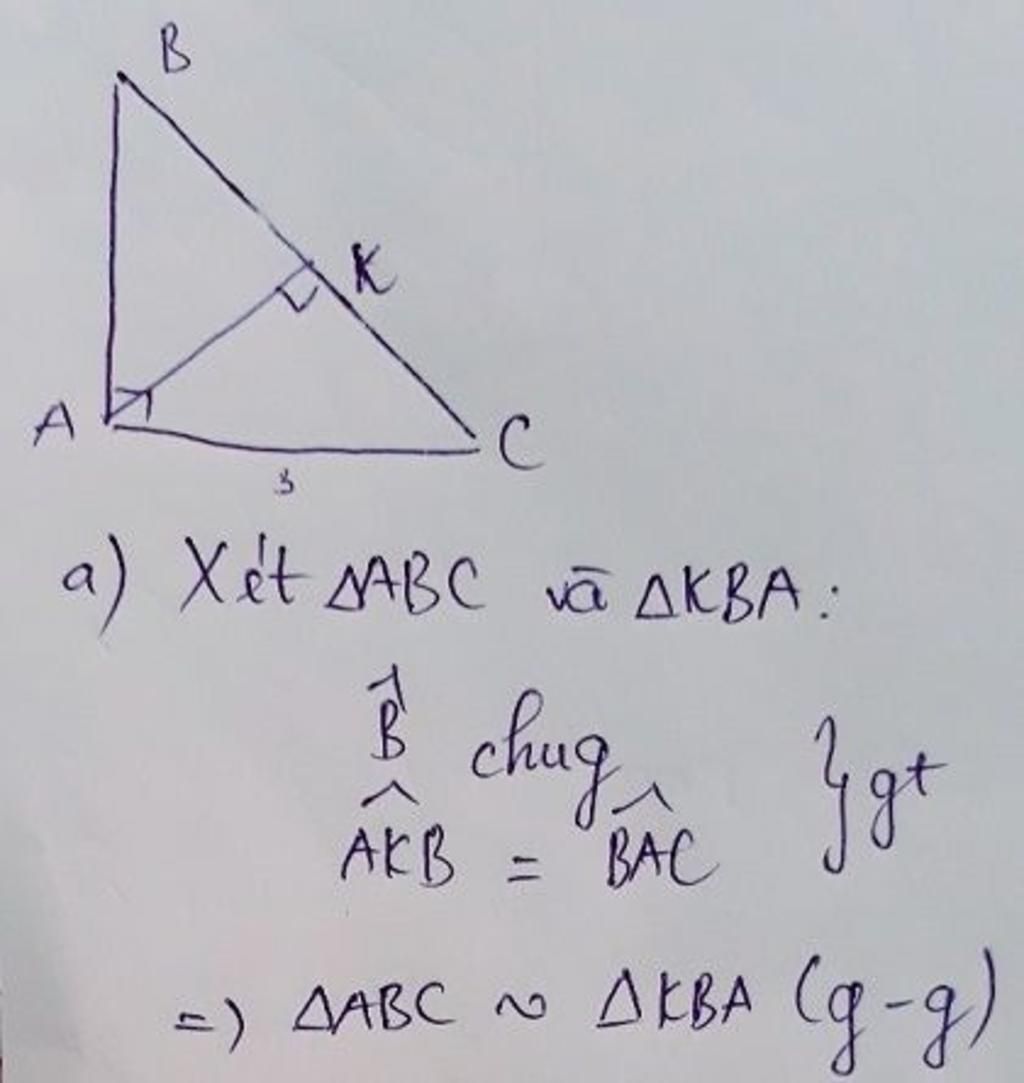 B
K
A
C
3
a) Xét ΔABC và ΔKBA :
B̂ chug
} gt
AKB̂ = BAĈ
=) ΔABC ∾ ΔKBA (g-g)